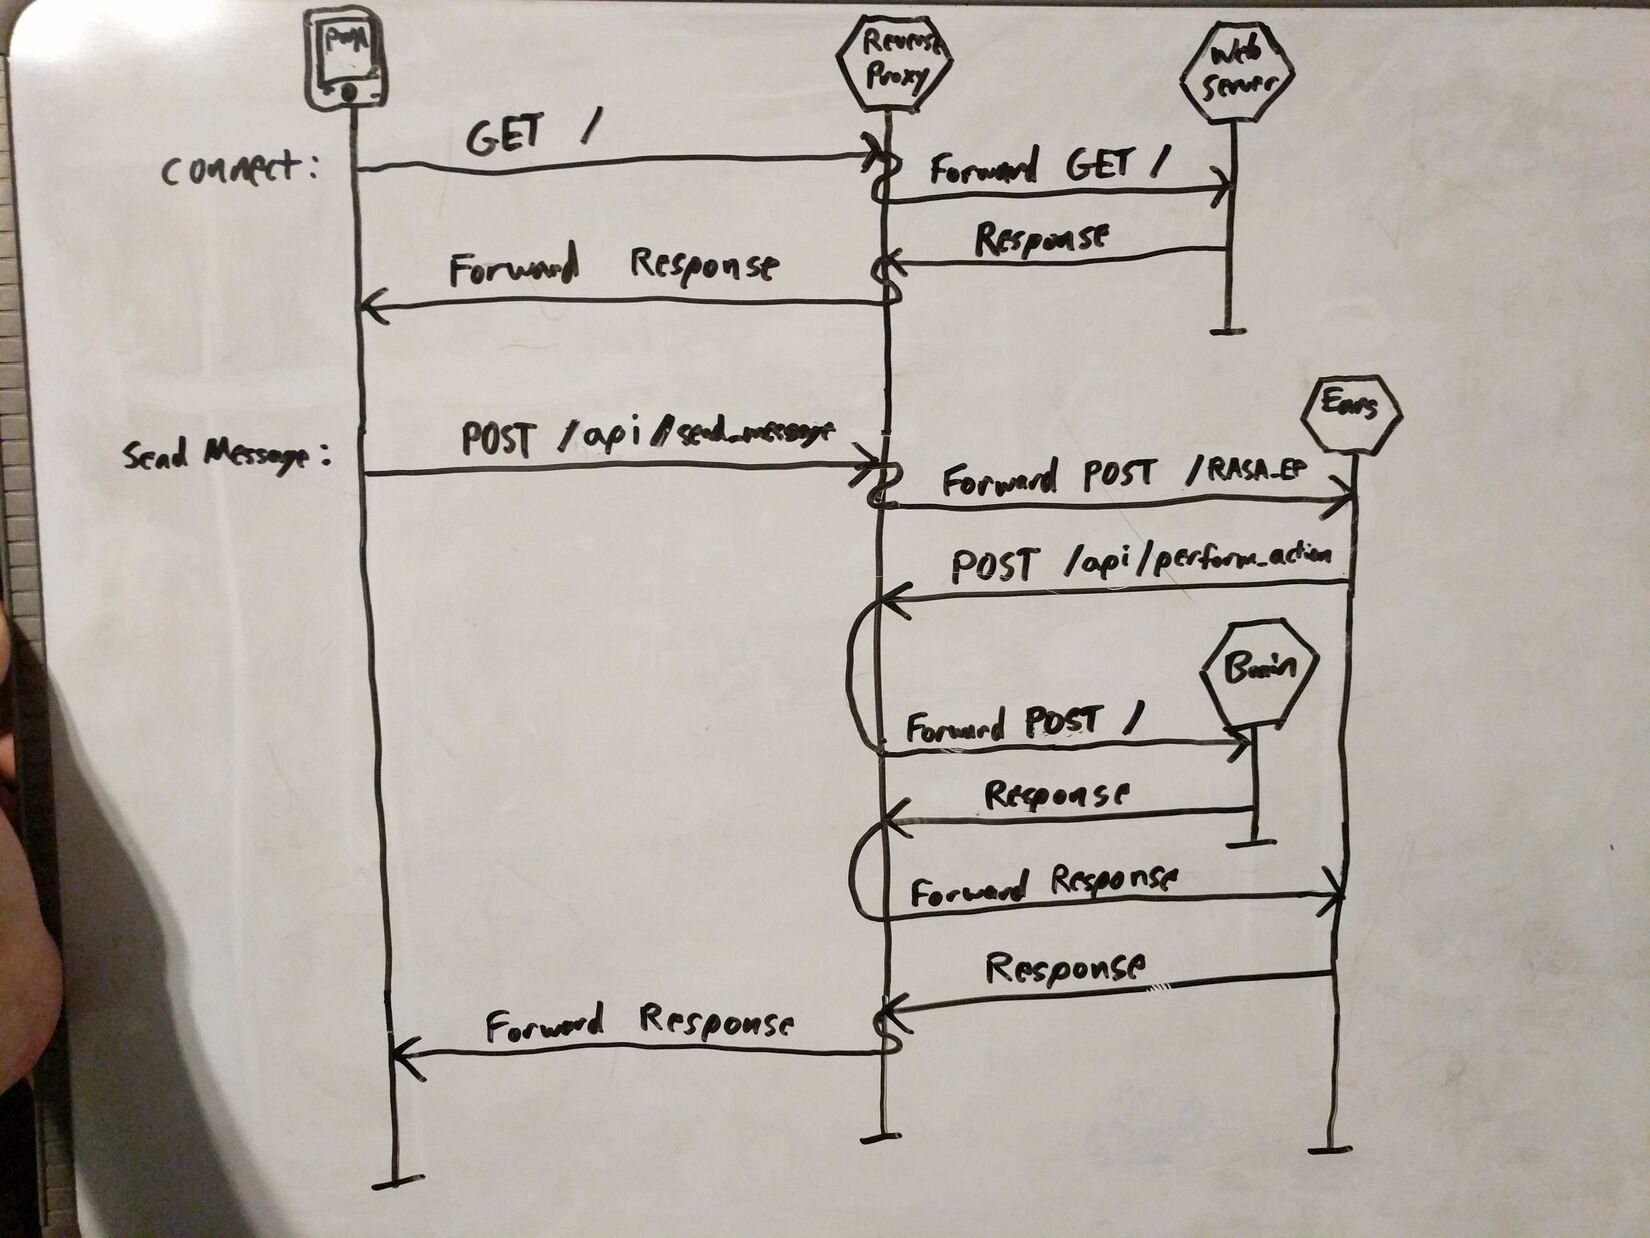 PWA
Reverse
Proxy
Web
Server
Connect:
GET /
Forward GET /
Response
Forward Response
Ears
Send Message:
POST /api/send_message
Forward POST /RASA_EP
POST /api/perform_action
Brain
Forward POST /
Response
Forward Response
Response
Forward Response